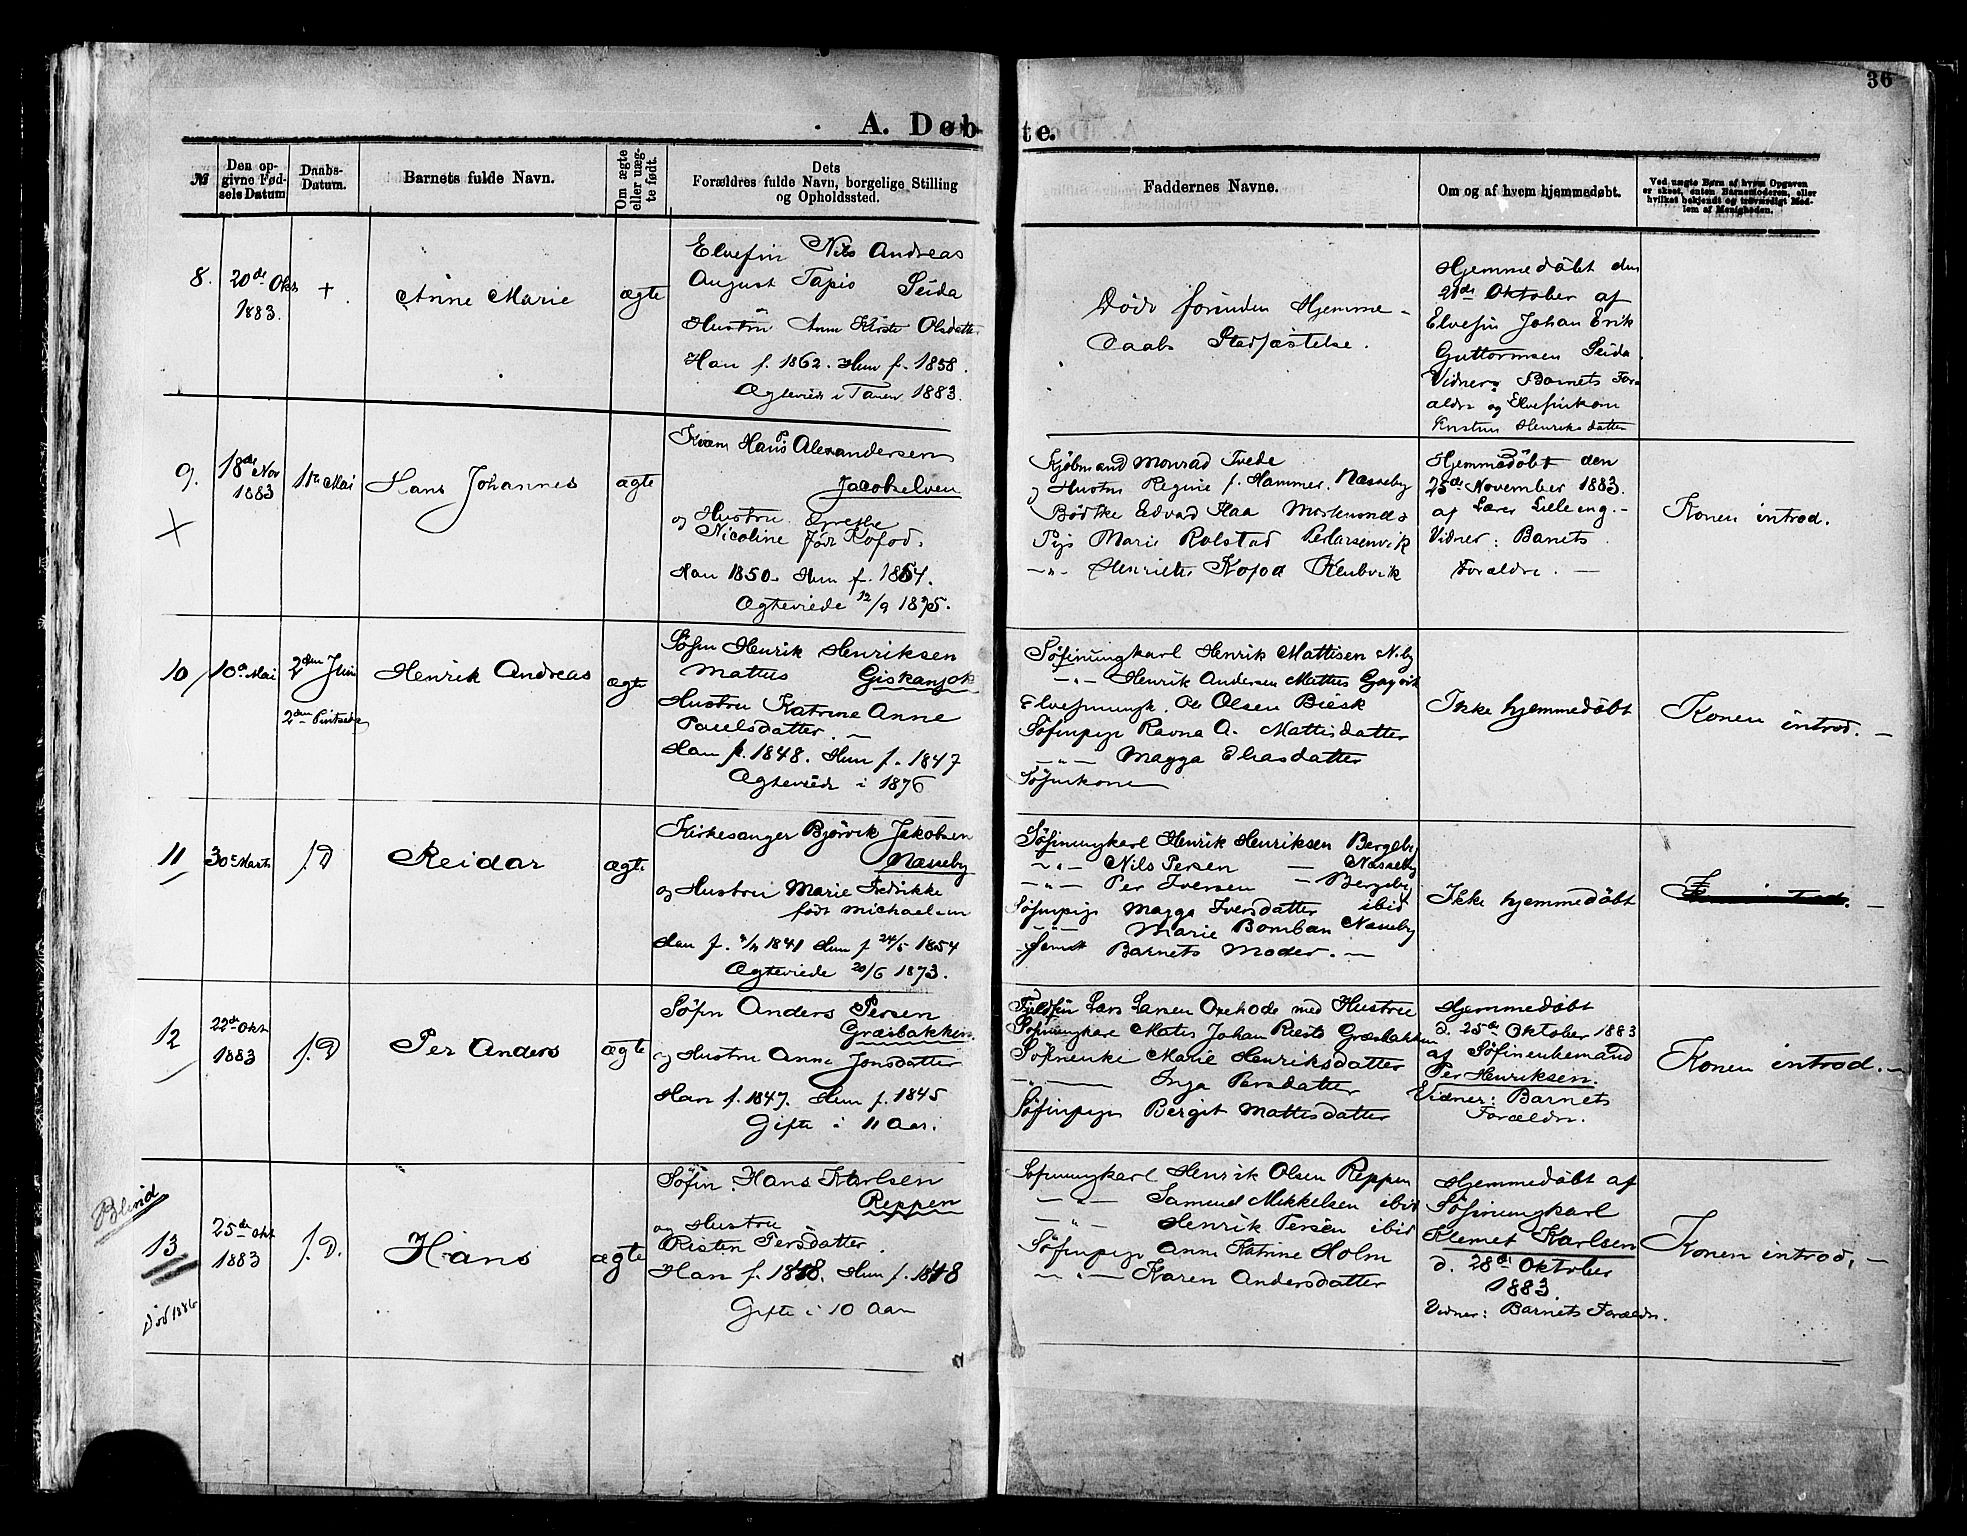 36
A. Døb-
te.
№
Den op-
givne Fød-
sels Datum
Daabs-
Datum.
Barnets fulde Navn.
Om ægte
eller uæg-
te født.
Dets
Forældres fulde Navn, borgelige Stilling
og Opholdssted.
Faddernes Navne.
Om og af hvem hjemmedøbt.
Ved uægte Børn af hvem Opgaven
er skeet, enten Barnemoderen, eller
hvilket bekjendt og troværdigt Med-
lem af Menigheden.
8.
20de Okt
1883.
+
Anne Marie
ægte
Elvefin Nils Andreas
August Tapio Seida
Hustru Anne Kirste Olsdatter
Han f. 1862. Hun f. 1858.
Ægteviede i Tanen 1883.
Døde forinden Hjemme-
daabs Stadfæstelse.
Hjemmedøbt den
21de Oktober af
Elvefin Johan Erik
Guttormsen Seida.
Vidner: Barnets For-
ældre og Elvefinkone
Kristine Henriksdatter
9.
18de Nov
1883
1ste Mai
Hans Johannes
ægte
Kvæn Hans P Alexandersen
Jacobselven
og Hustru Grethe
Nicoline født Kofod.
Han 1850. Hun f. 1854.
Ægteviede 12/9 1875.
Kjøbmand Monrad Tvede
og Hustru Regine f. Hammer. Næsseby
Bødtke Edvard Haa
Pige Marie Rolstad
-"- Henriette Kofod
Hjemmedøbt den
25de November 1883.
af Lærer Lilleeng.-
Vidner: Banets
Forældre. -
Konen introd.
10
10de Mai
2den Juni
2den Pintsedag
Henrik Andreas
ægte
Søfin Henrik Henriksen
Mattus Giskanjok
Hustru Katrine Anne
Paulsdatter. -
Han f. 1848. Hun f. 1847
Ægteviede i 1876
Søfinungkarl Henrik Mattisen N.by
-"- Henrik Andersen Mattus
Elvefinungk. Ole Olsen Biesk
Søfinpige Ravna A. Mattisdatter
-"- Magga Eliasdatter
Søfinkone
Ikke hjemmedøbt
Konen introd. -
11
30te Marts
s. D
Reidar
ægte
Kirkesanger Bjørvik Jakobsen
Næsseby
og Hustru Marie Fredrikke
født Michaelsen
Han f. 1841 Hun f 24/5 1854
Ægteviede 20/6 1873.
Søfinungkarl Henrik Henriksen Bergeby
-"- Nils Persen - Næsseby
-"- Per Iversen - Bergeby
Søfinpige Magga Iversdatter ibid
Marie Bomban Næsseby
samt Barnets Moder. -
Ikke hjemmedøbt
12
22de Okt
1883
s. D
Per Anders
ægte
Søfin Anders Persen
Græsbakken
og Hustru Anne Jonsdatter
Han f. 1847. Hun f. 1845
Gifte i 11 Aar.
Fjeldfin Lars Larsen med Hustru
Søfinungkarl Matis Johan Græsbakken
Søfinenke Marie Henriksdatter
-"- Inga Persdatter
Søfinpige Bergit Mattisdatter
Hjemmedøbt
d. 25de Oktober 1883
af Søfinenkemand
Per Henriksen.
Vidner: Barnets
Forældre.
Konen introd. -
Blind
13
Død 1886
25de Okt
1883
s. D.
Hans
ægte
Søfin Hans Karlsen
Reppen
og Hustru
Risten Persdatter
Han f. 1848. Hun f. 1848
Gifte i 10 Aar
Søfinungkarl Henrik Olsen Reppen
-"- Samuel Mikkelsen ibid
-"- Henrik Persen ibid
Søfinpige Anne Katrine Holm
-"- Karen Andersdatter
Hjemmedøbt af
Søfinungkarl
Klemet Karlsen
d. 28de Oktober
1883.
Vidner: Barnets Forældre.
Konen introd. -